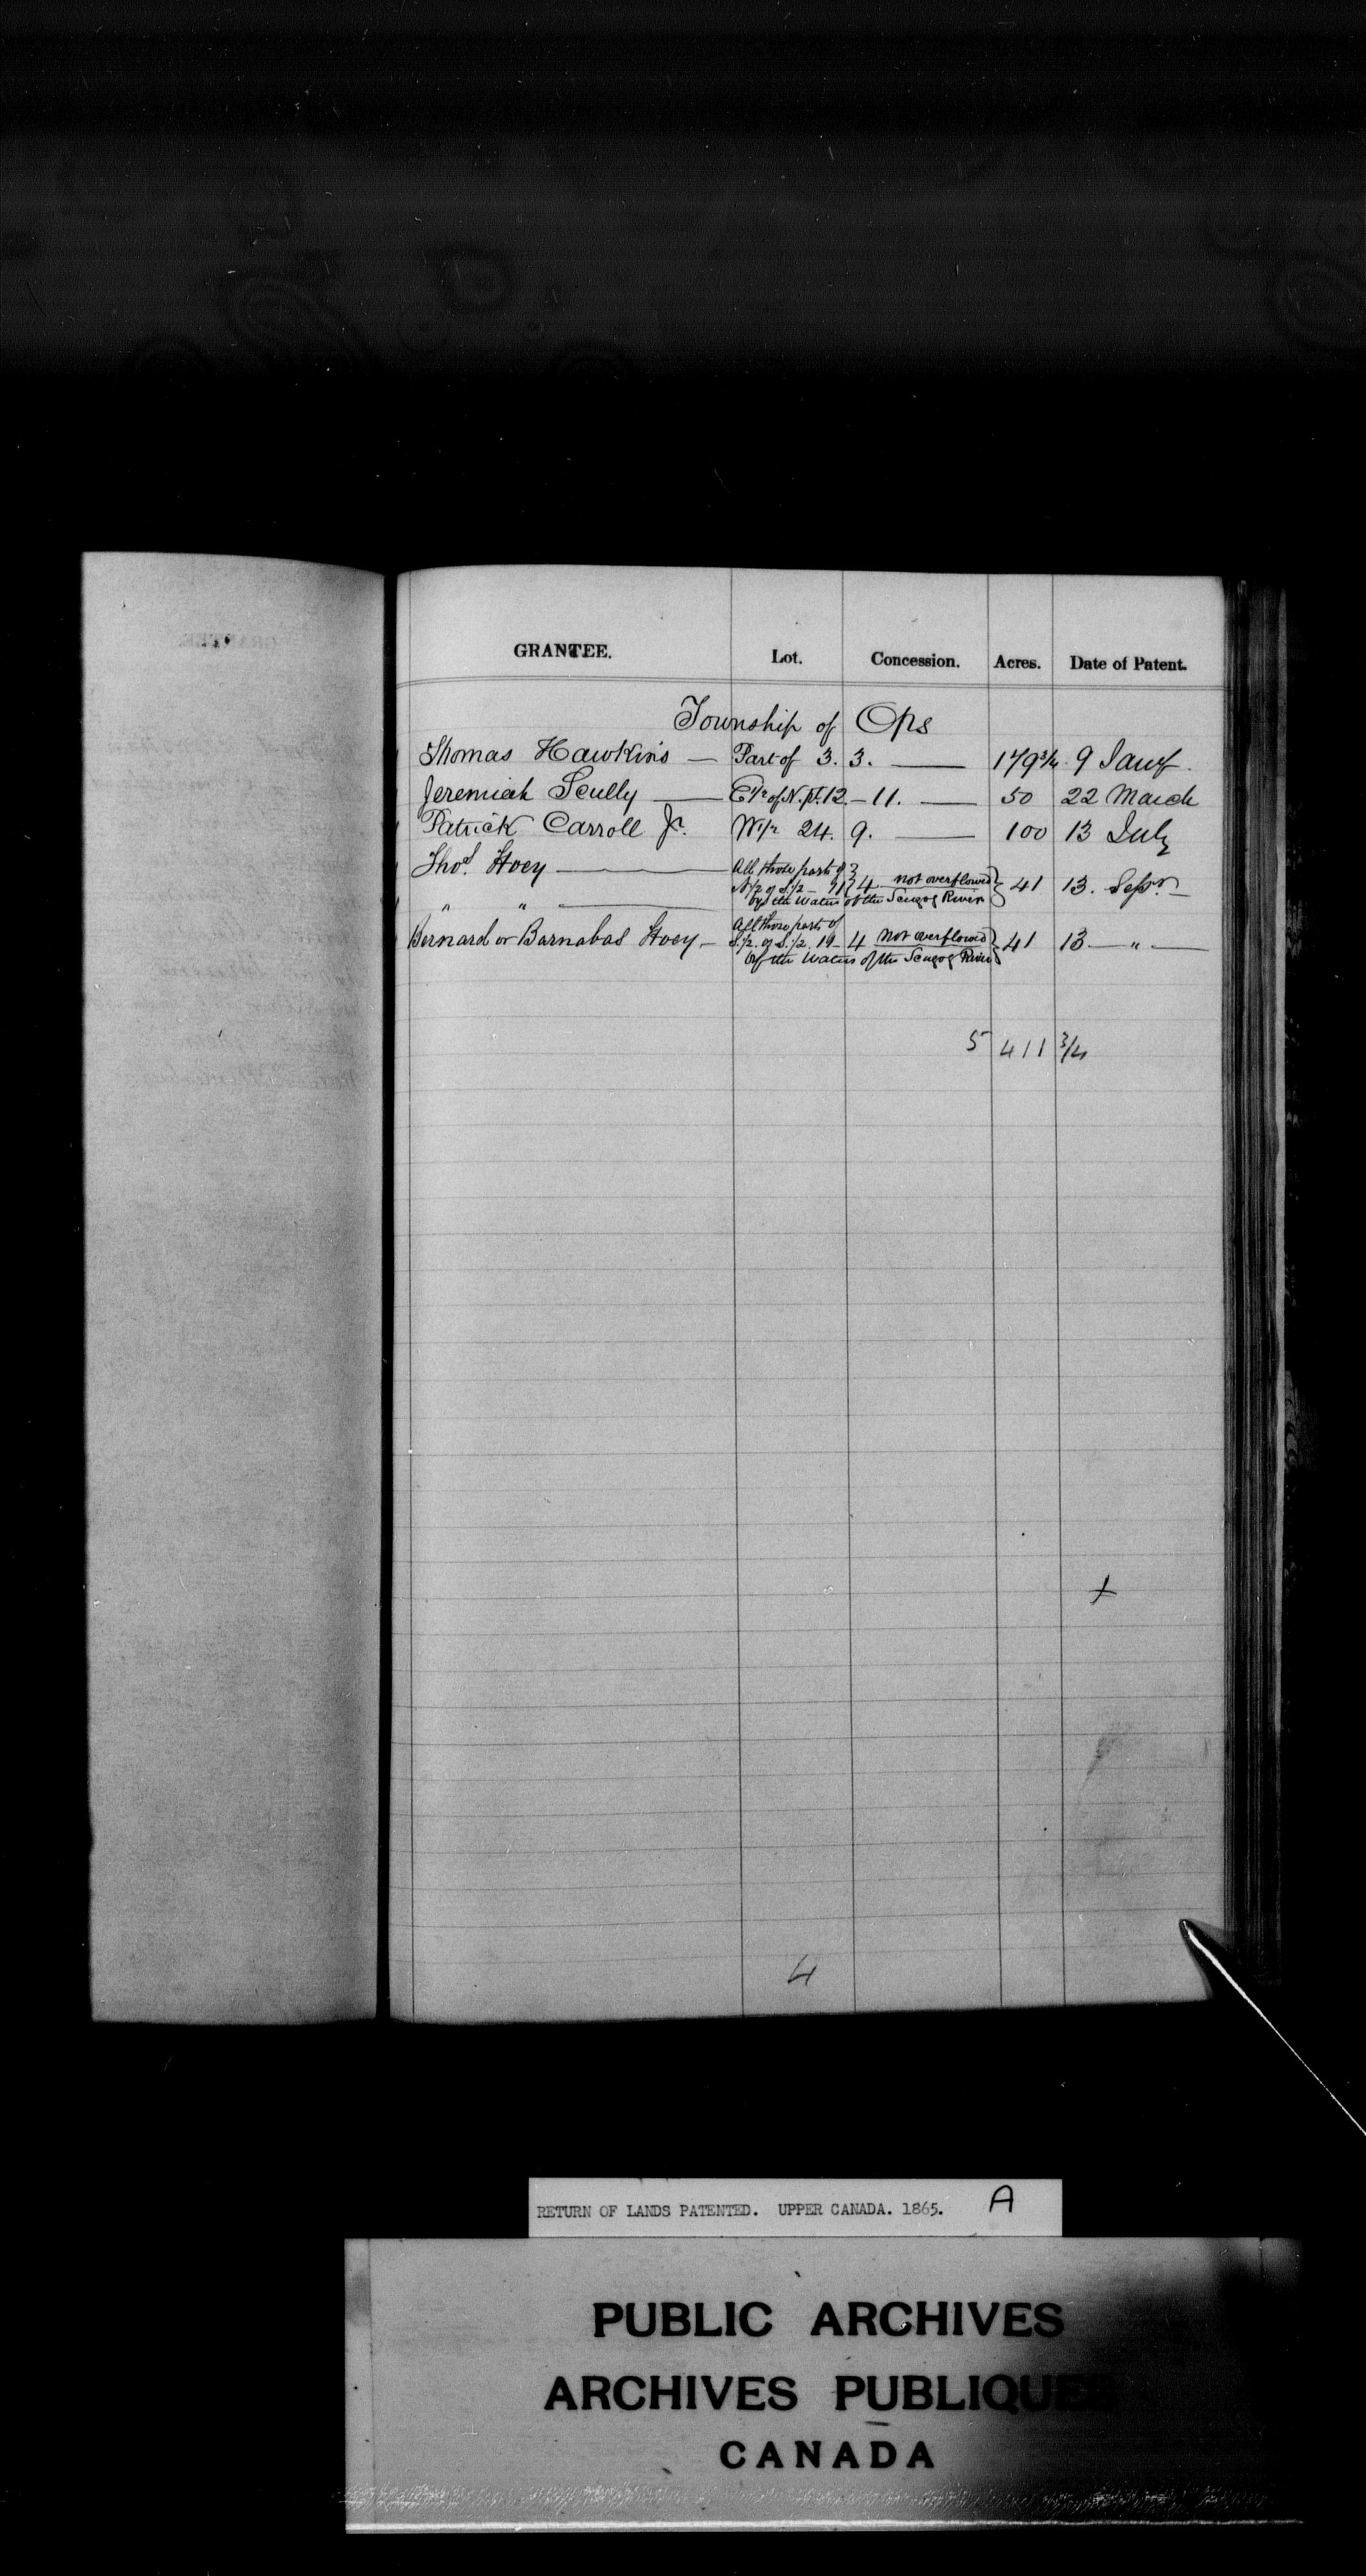 GRANTEE. Lot. Concession. Acres. Date of Patent.
Township of Ops
Thomas Hawkins — Part of 3. 3. — 179 3/4 9 Jany.
Jeremiah Scully — E 1/2 of N. pt. 12. — 11. — 50 22 March
Patrick Carroll Jr. W 1/2 24. 9. — 100 13 July
Thos. Hoey — All those parts of
N 1/2 of S. 1/2 — 4 not overflowed } 41 13. Sepr. —
" " — by the waters of the Scugog River
All those parts of
Bernard or Barnabas Hoey — S. 1/2. of S. 1/2. 19 — 4 not overflowed } 41 13 — " —
by the waters of the Scugog River
5 411 3/4
+
4
RETURN OF LANDS PATENTED. UPPER CANADA. 1865. A
PUBLIC ARCHIVES
ARCHIVES PUBLIQUES
CANADA